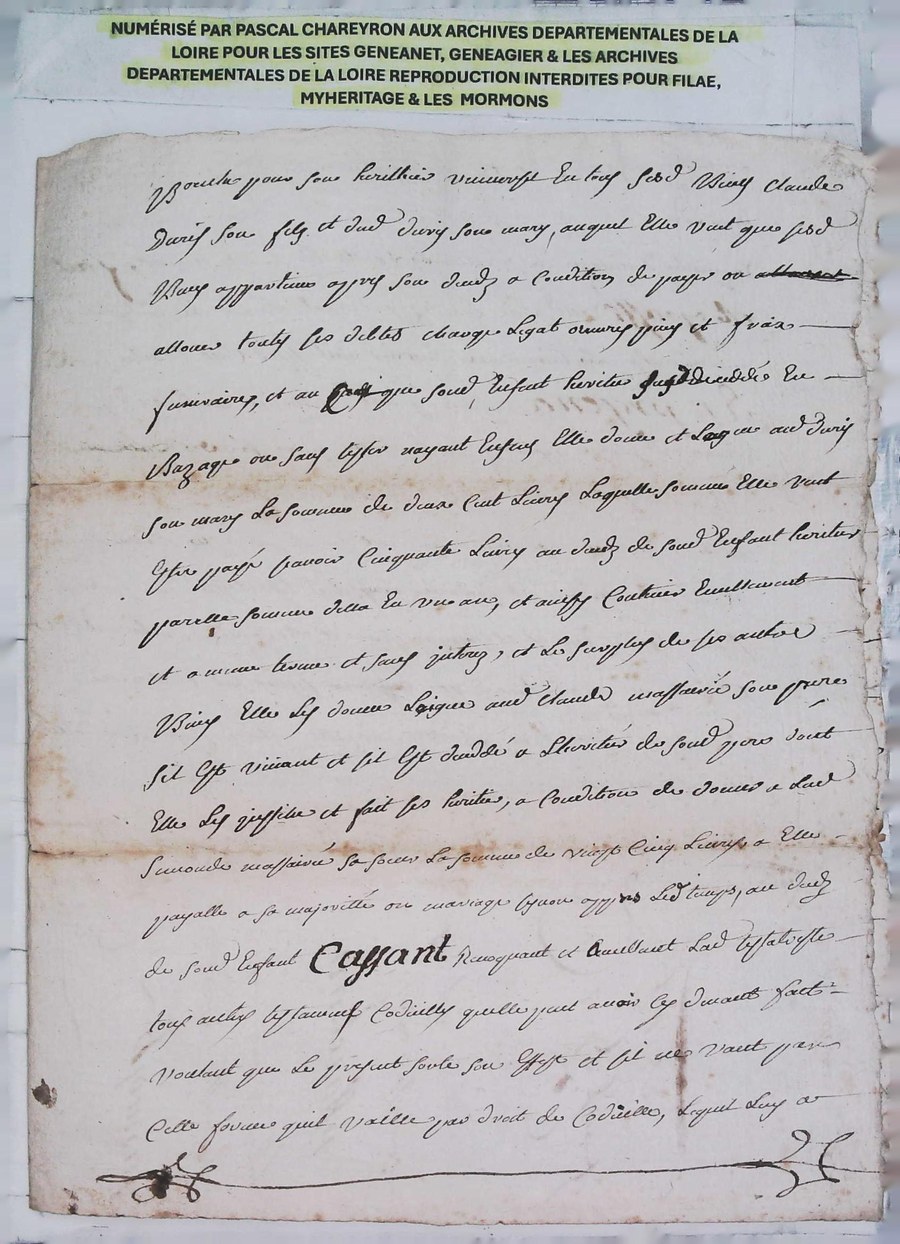 NUMÉRISÉ PAR PASCAL CHAREYRON AUX ARCHIVES DEPARTEMENTALES DE LA
LOIRE POUR LES SITES GENEANET, GENEAGIER & LES ARCHIVES
DEPARTEMENTALES DE LA LOIRE REPRODUCTION INTERDITES POUR FILAE,
MYHERITAGE & LES MORMONS
pour son heritier universel En tous sesd Biens Claude
Duris son filz et dud duris son mary, auquel Elle veut que sesd
Biens appartiene apres son decedz a Condition de payer ou
alloue toutes ses debtes charge Legat œuvres pies et frais
funeraires, et au Cas que sond Enfant heritier decedée En
Bas aage ou sans tester nayant Enfens Elle done et Legue aud duris
son mary La somme de deux Cent Livres Laquelle somme Elle veut
Estre payé scavoir Cinquante Livres au decedz de sond Enfant heritier
parelle somme dela En un an, et ainssy Continuer
et a meme terme et sans jnterez, et Le surplus de ses autre
Biens Elle Les donne Legue aud Claude massardié son pere
sil Est vivant et sil Est decedé a Lheritier de sond pere
Elle Les jnstitue et fait ses heritier, a Condition de donner a Lad
massardié sa soeur La somme de vingt Cinq Livres a Elle
payable a sa majorité ou mariage sinon appres Led temps, au decedz
de sond Enfant Cassant Revoquant et anullant Lad testatrisse
tous autres testament Codicilles quelle peut avoir Cy devant fait
voulant que Le present sorte son Effest et sil ne vaut par
Celle forme quil vaille par droit de Codicille, Lequel Luy a